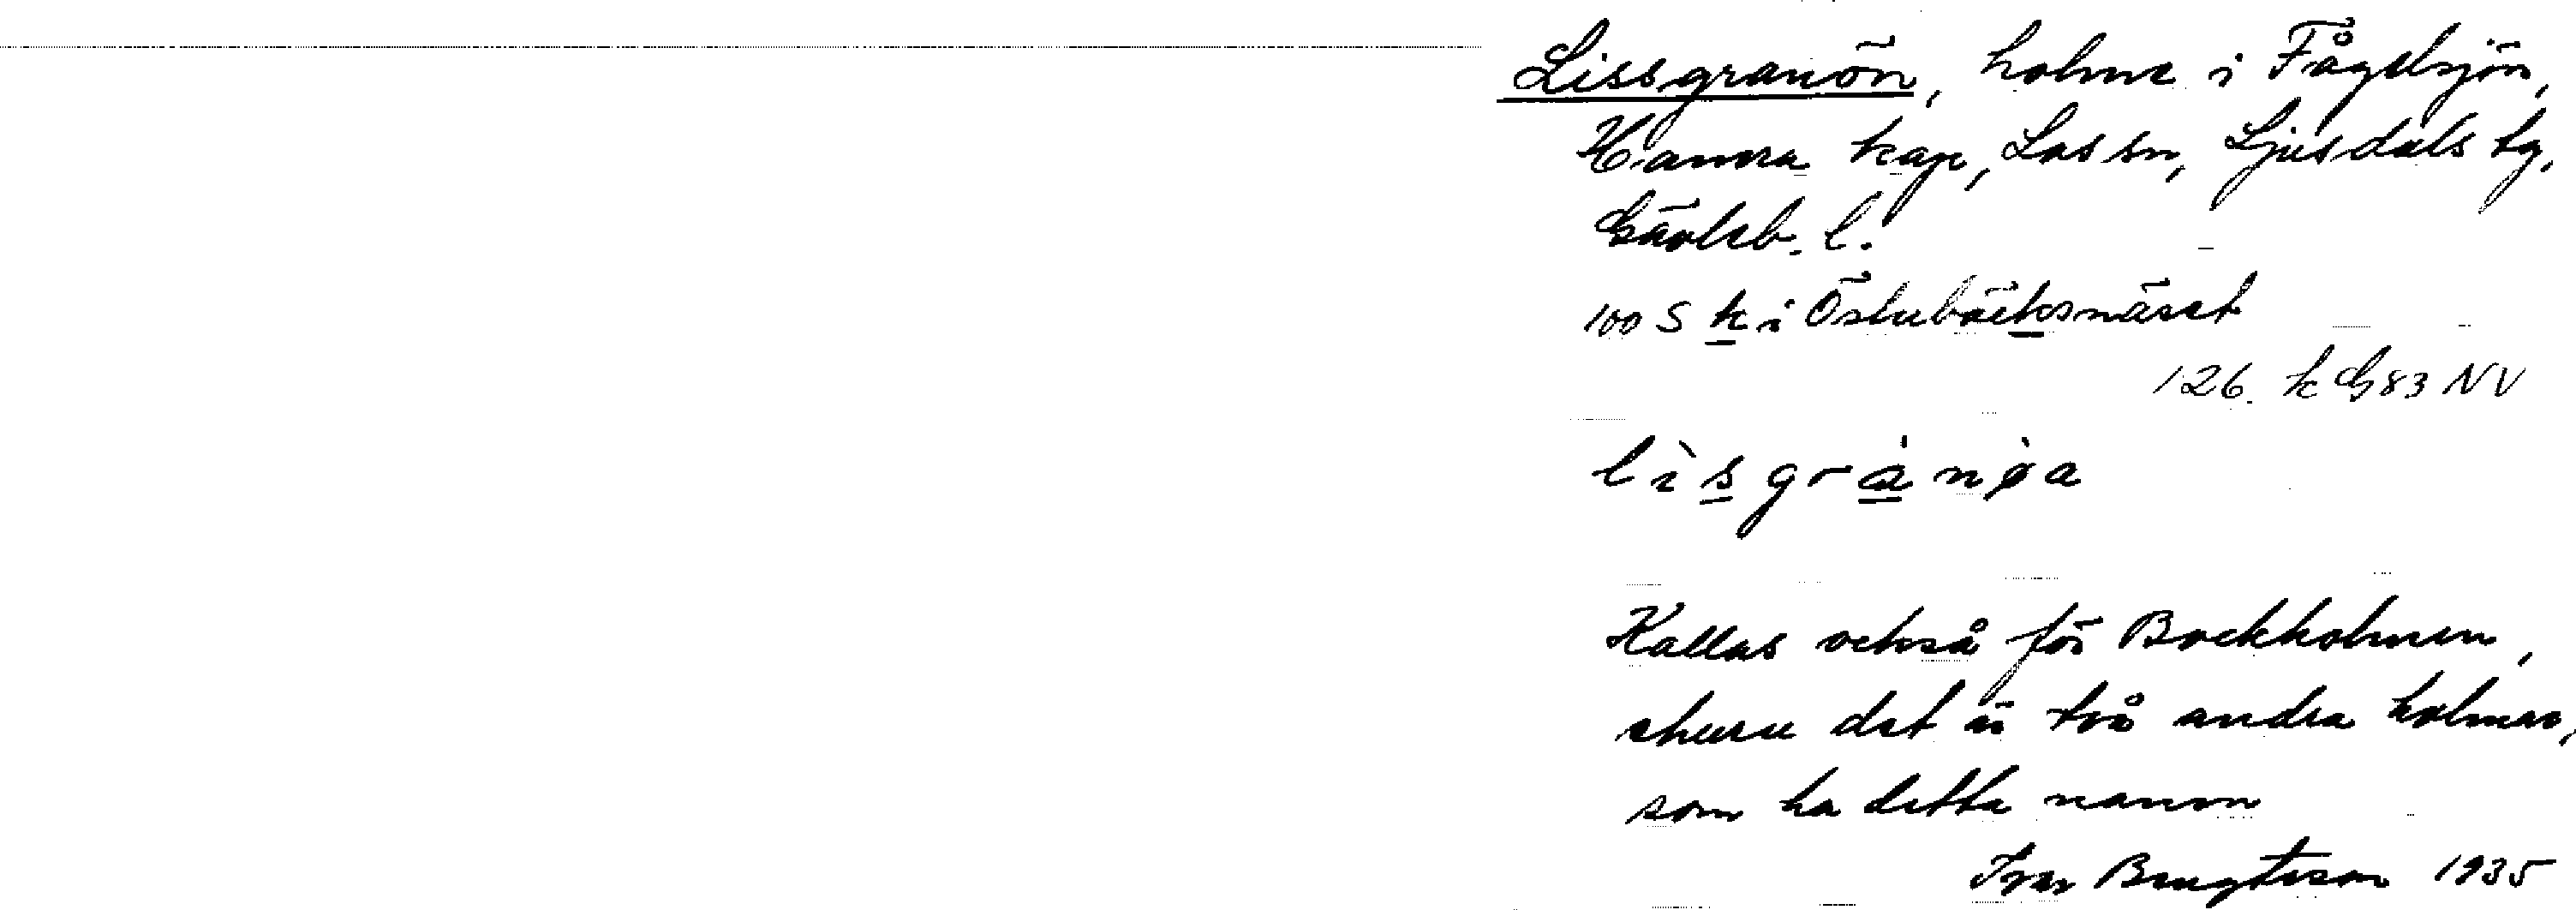 Lissgranön, holme i Fågelsjön,
Hamra kap, Los sn, Ljusdals tg,
Gävleb. l.
100 S k i Österbäcksnäset
126. k G 83 NV
lìsgrànøa
Kallas också för Bockholmen,
ehuru det är två andra holmar,
som ha detta namn
Ivar Bengtsson 1935